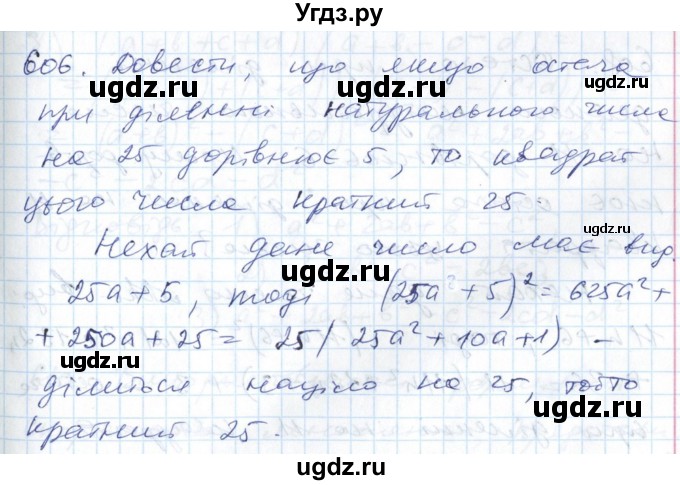 Угдз.ру
606. Довести, що якщо остача
при діленні натурального числа
на 25 дорівнює 5, то квадрат
цього числа кратний 25.
Нехай дане число має вид
25a + 5, тоді (25a² + 5)² = 625a² +
+ 250a + 25 = 25(25a² + 10a + 1) –
ділиться націло на 25, тобто
кратний 25.
ugdz.ru
ugdz.ru
ugdz.ru
ugdz.ru
ugdz.ru
ugdz.ru
ugdz.ru
ugdz.ru
ugdz.ru
ugdz.ru
ugdz.ru
ugdz.ru
ugdz.ru